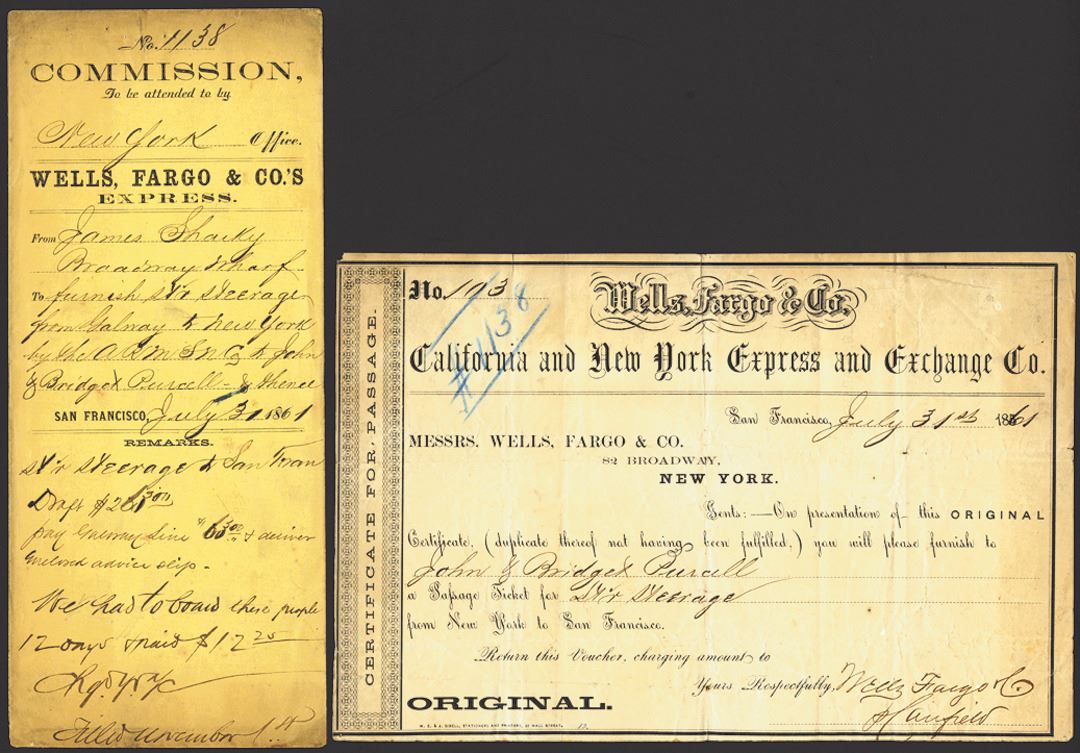 No. 1138
COMMISSION,
To be attended to by
New York Office.
WELLS, FARGO & CO.'S
EXPRESS.
From James Sharky
Broadway Wharf
To furnish Str Steerage
from Galway to New York
by the A R M S N Co to John
& Bridget Purcell - & thence
SAN FRANCISCO, July 31 1861
REMARKS.
Str Steerage to San Fran
Draft $
pay Galway Line & deliver
enclosed advice slip.
We had to board these people
12 days & paid $12 25
Filed November 1st
No. 193
#1138
Wells, Fargo & Co.
California and New York Express and Exchange Co.
CERTIFICATE FOR PASSAGE.
San Francisco, July 31st 1861
MESSRS. WELLS, FARGO & CO.
82 BROADWAY,
NEW YORK.
Gents:—On presentation of this ORIGINAL
Certificate, (duplicate thereof not having been fulfilled,) you will please furnish to
John & Bridget Purcell
a Passage Ticket for Str Steerage
from New York to San Francisco.
Return this Voucher, charging amount to
Yours Respectfully, Wells Fargo & Co
ORIGINAL.